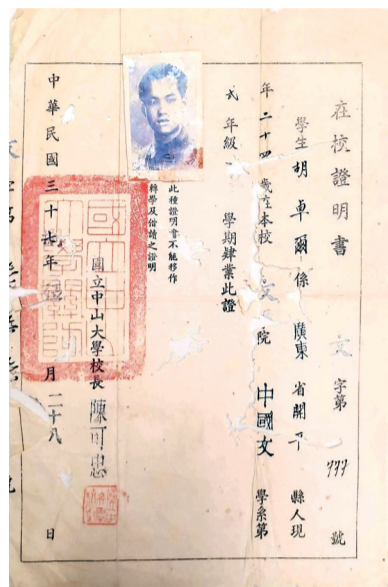 在校證明書
文字第777號
學生胡卓爾係廣東省開平縣人現
年二十四歲在本校文院中國文學系第
弍年級 學期肄業此證
此種證明書不能移作
轉學及借讀之證明
國立中山大學校長陳可忠
中華民國三十七年 月二十八日